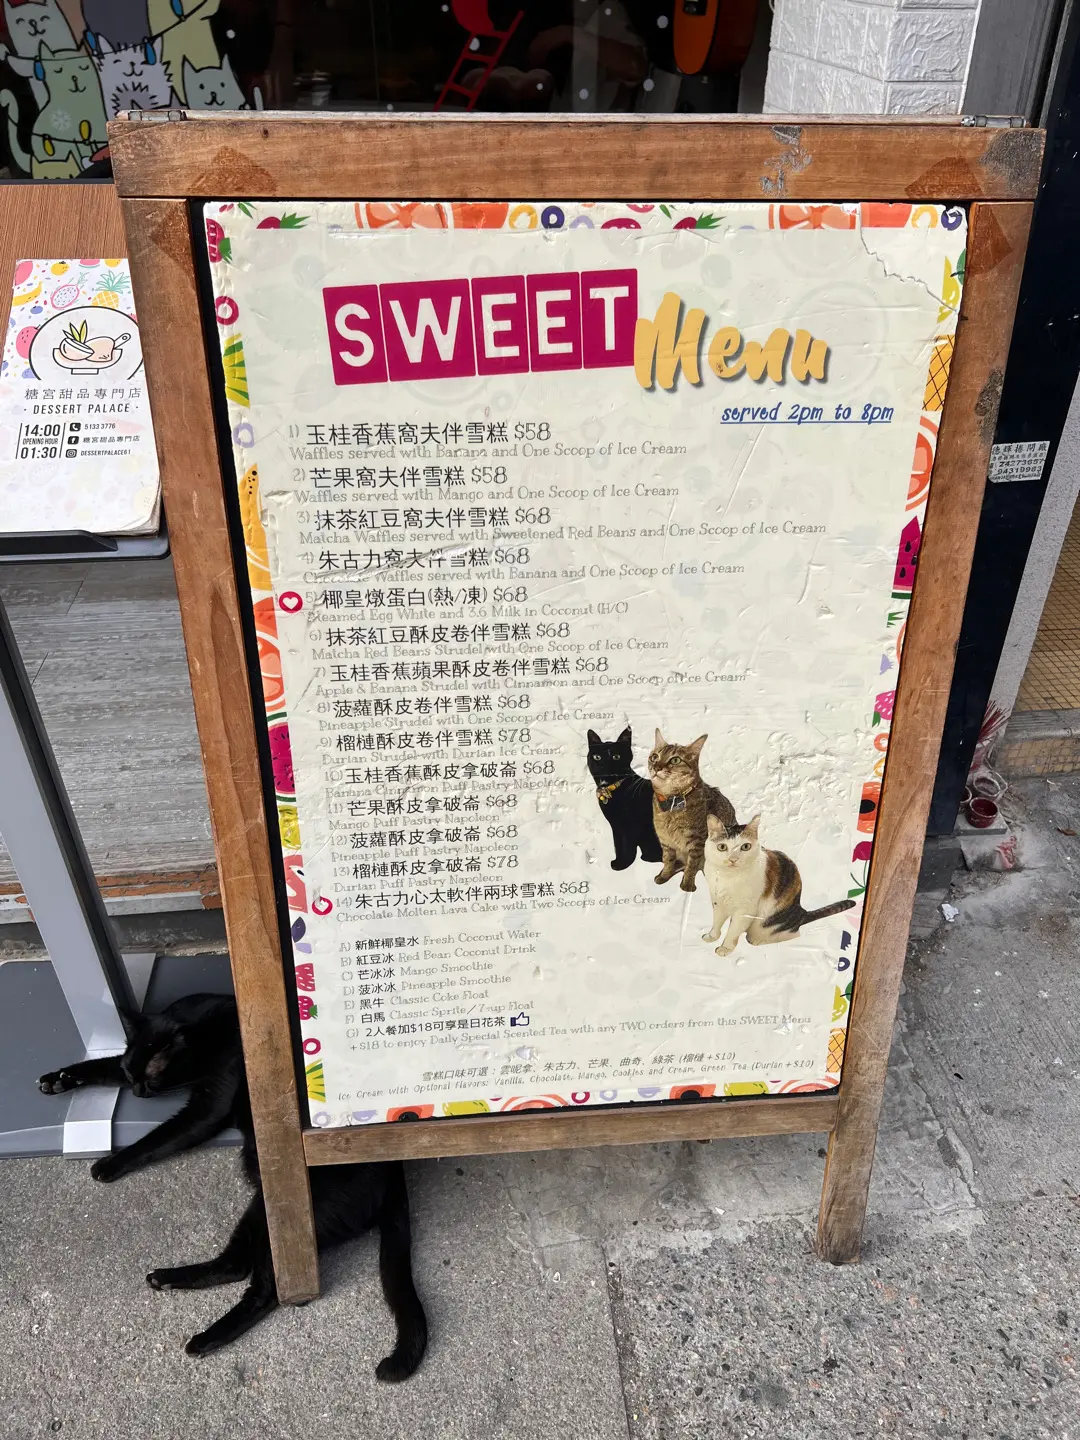 SWEET Menu
served 2pm to 8pm
1) 玉桂香蕉窩夫伴雪糕 $58
Waffles served with Banana and One Scoop of Ice Cream
2) 芒果窩夫伴雪糕 $58
Waffles served with Mango and One Scoop of Ice Cream
3) 抹茶紅豆窩夫伴雪糕 $68
Matcha Waffles served with Sweetened Red Beans and One Scoop of Ice Cream
4) 朱古力窩夫伴雪糕 $68
Chocolate Waffles served with Banana and One Scoop of Ice Cream
5) 椰皇燉蛋白(熱/凍) $68
Steamed Egg White and 3.6 Milk in Coconut (H/C)
6) 抹茶紅豆酥皮卷伴雪糕 $68
Matcha Red Beans Strudel with One Scoop of Ice Cream
7) 玉桂香蕉蘋果酥皮卷伴雪糕 $68
Apple & Banana Strudel with Cinnamon and One Scoop of Ice Cream
8) 菠蘿酥皮卷伴雪糕 $68
Pineapple Strudel with One Scoop of Ice Cream
9) 榴槤酥皮卷伴雪糕 $78
Durian Strudel with Durian Ice Cream
10) 玉桂香蕉酥皮拿破崙 $68
Banana Cinnamon Puff Pastry Napoleon
11) 芒果酥皮拿破崙 $68
Mango Puff Pastry Napoleon
12) 菠蘿酥皮拿破崙 $68
Pineapple Puff Pastry Napoleon
13) 榴槤酥皮拿破崙 $78
Durian Puff Pastry Napoleon
14) 朱古力心太軟伴兩球雪糕 $68
Chocolate Molten Lava Cake with Two Scoops of Ice Cream
A) 新鮮椰皇水 Fresh Coconut Water
B) 紅豆冰 Red Bean Coconut Drink
C) 芒冰冰 Mango Smoothie
D) 菠冰冰 Pineapple Smoothie
E) 黑牛 Classic Coke Float
F) 白馬 Classic Sprite/7-up Float
G) 2人餐加$18可享是日花茶
+$18 to enjoy Daily Special Scented Tea with any TWO orders from this SWEET Menu
雪糕口味可選：雲呢拿、朱古力、芒果、曲奇、綠茶 (榴槤+$10)
Ice Cream with Optional Flavors: Vanilla, Chocolate, Mango, Cookies and Cream, Green Tea (Durian +$10)
糖宮甜品專門店
· DESSERT PALACE ·
14:00
OPENING HOUR
01:30
5133 3776
糖宮甜品專門店
DESSERTPALACE61